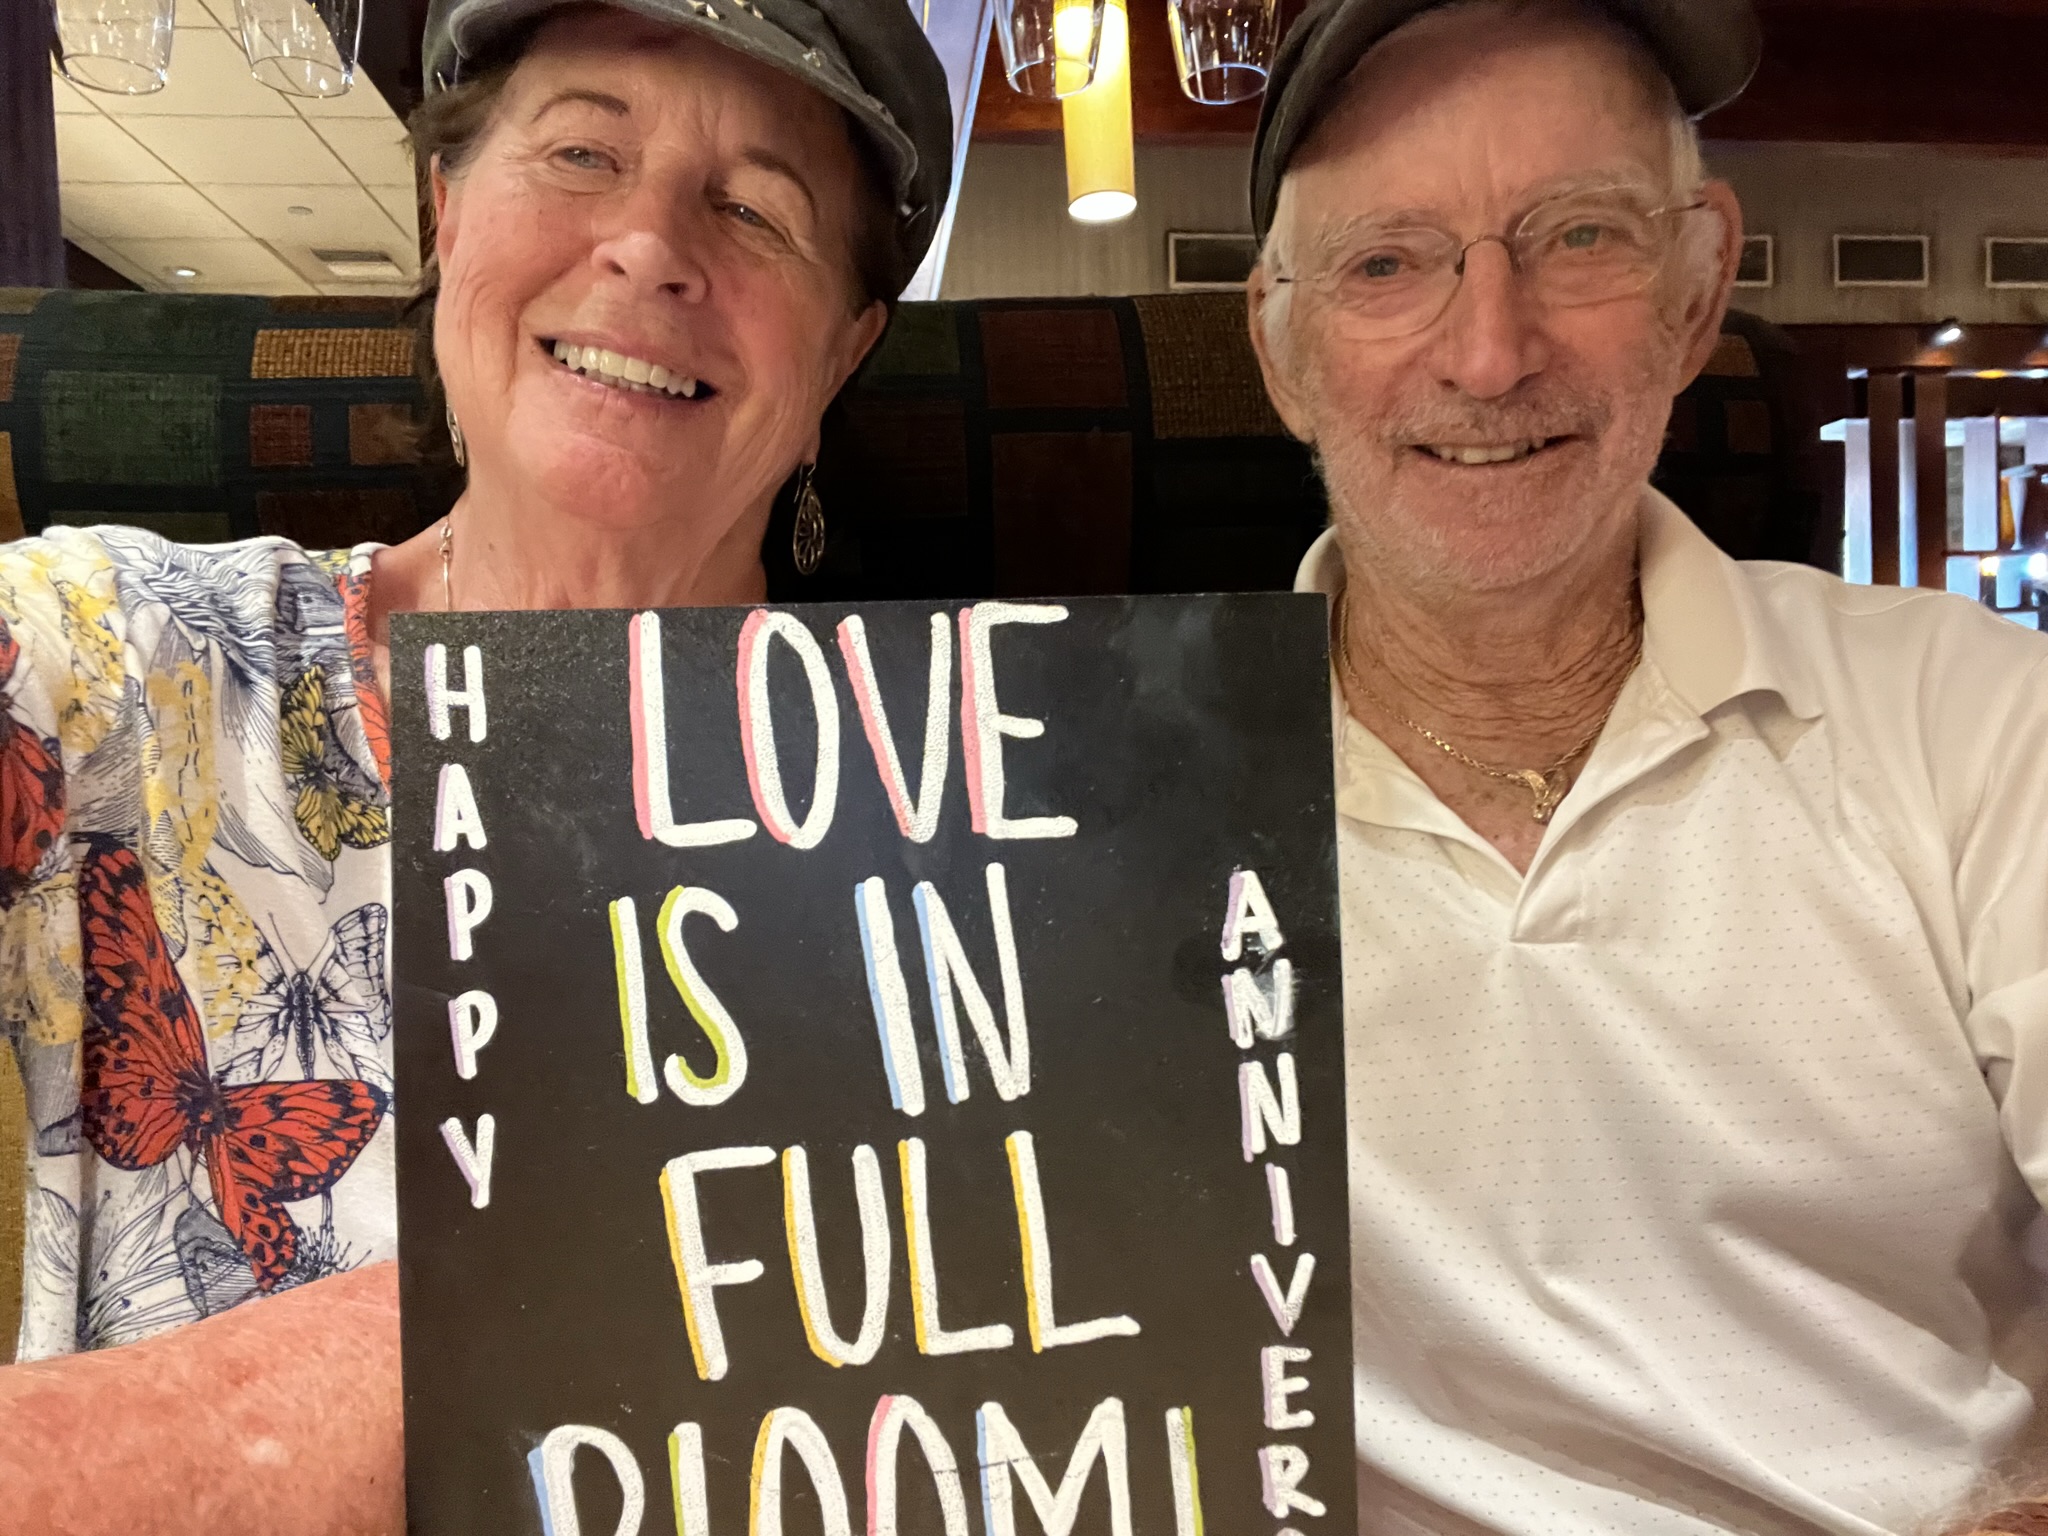 HAPPY
LOVE
IS IN
FULL
BLOOM!
ANNIVER